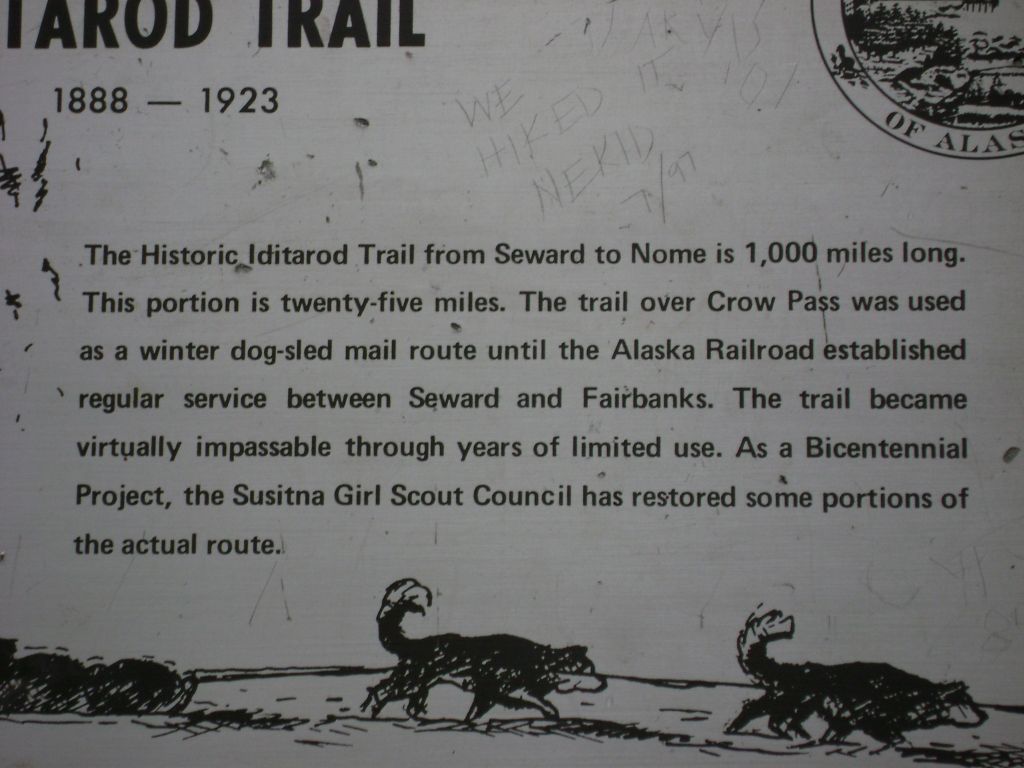 TAROD TRAIL
1888 — 1923
OF ALAS
WE
HIKED IT
NEKID
7/97
The Historic Iditarod Trail from Seward to Nome is 1,000 miles long.
This portion is twenty-five miles. The trail over Crow Pass was used
as a winter dog-sled mail route until the Alaska Railroad established
regular service between Seward and Fairbanks. The trail became
virtually impassable through years of limited use. As a Bicentennial
Project, the Susitna Girl Scout Council has restored some portions of
the actual route.